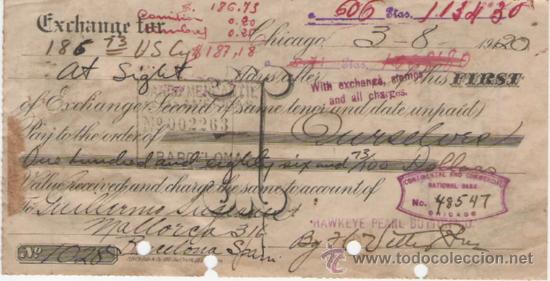 $ 186.73
Comition 0.20
Timbre 0.20
$ 187,18
a 606 Ptas. 1134 30
Exchange for
186 73 US Cy
Chicago 3/8 1920
At Sight days after this FIRST
With exchange, stamps
and all charges.
of Exchange (Second of same tenor and date unpaid)
Pay to the order of Ourselves
No 002263
BARCELONA
One hundred and eighty six and 73/100 Dollars
Value received and charge the same to account of
CONTINENTAL AND COMMERCIAL
NATIONAL BANK
No. 48547
CHICAGO
To Guillermo
Mallorca 316
HAWKEYE PEARL BUTTON CO.
No 1028 Barcelona Spain
By
todocoleccion.net